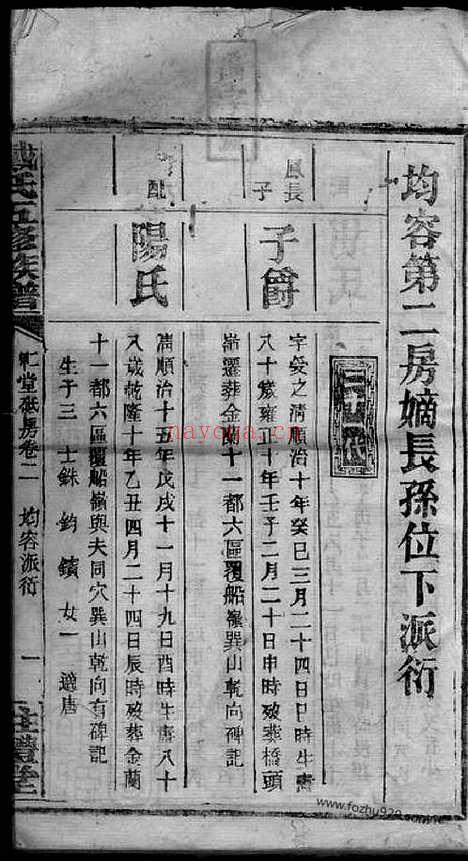 均容第二房嫡長孫位下派衍
鳳長子
子爵
字爰之清順治十年癸巳三月二十四日巳時生壽
八十歲雍正十年壬子二月二十日申時歿葬橋頭
嶺遷葬金蘭十一都六區覆船嶺巽山乾向碑記
配
陽氏
清順治十五年戊戌十一月十九日酉時生壽八十
八歲乾隆十年乙丑四月二十四日辰時歿葬金蘭
十一都六區覆船嶺與夫同穴巽山乾向有碑記
生子三 士銖 鈞 鑌 女一 適唐
戴氏五修族譜
堂砥房卷二 均容派衍 一
註禮堂
nayona.cn
www.fozhu920.com